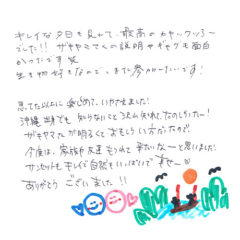 キレイな夕日を見れて、最高のカヤックツアー
でした!! ザキヤマさんの説明やギャグも面白
かったです笑
生き物好きなので、また参加したいです!
思てた以上に楽しめて、いやされました!
沖縄出身でも知らないこと沢山知れて、たのしかったー!
ザキヤマさんが明るくておもしろい方だったので、
今度は、家族や友達もつれて来たいなーと思いました!
サンセットもキレイで自然もいっぱいで
ありがとうございました!!